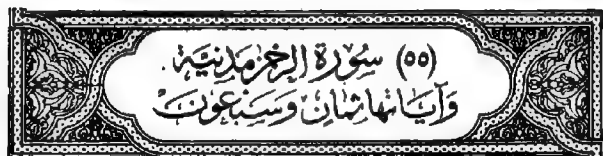 (٥٥) سُورَة الرَّحمٰن مَدَنِيَّة
وَآيَاتُهَا ثَمَانٍ وَسَبْعُونَ